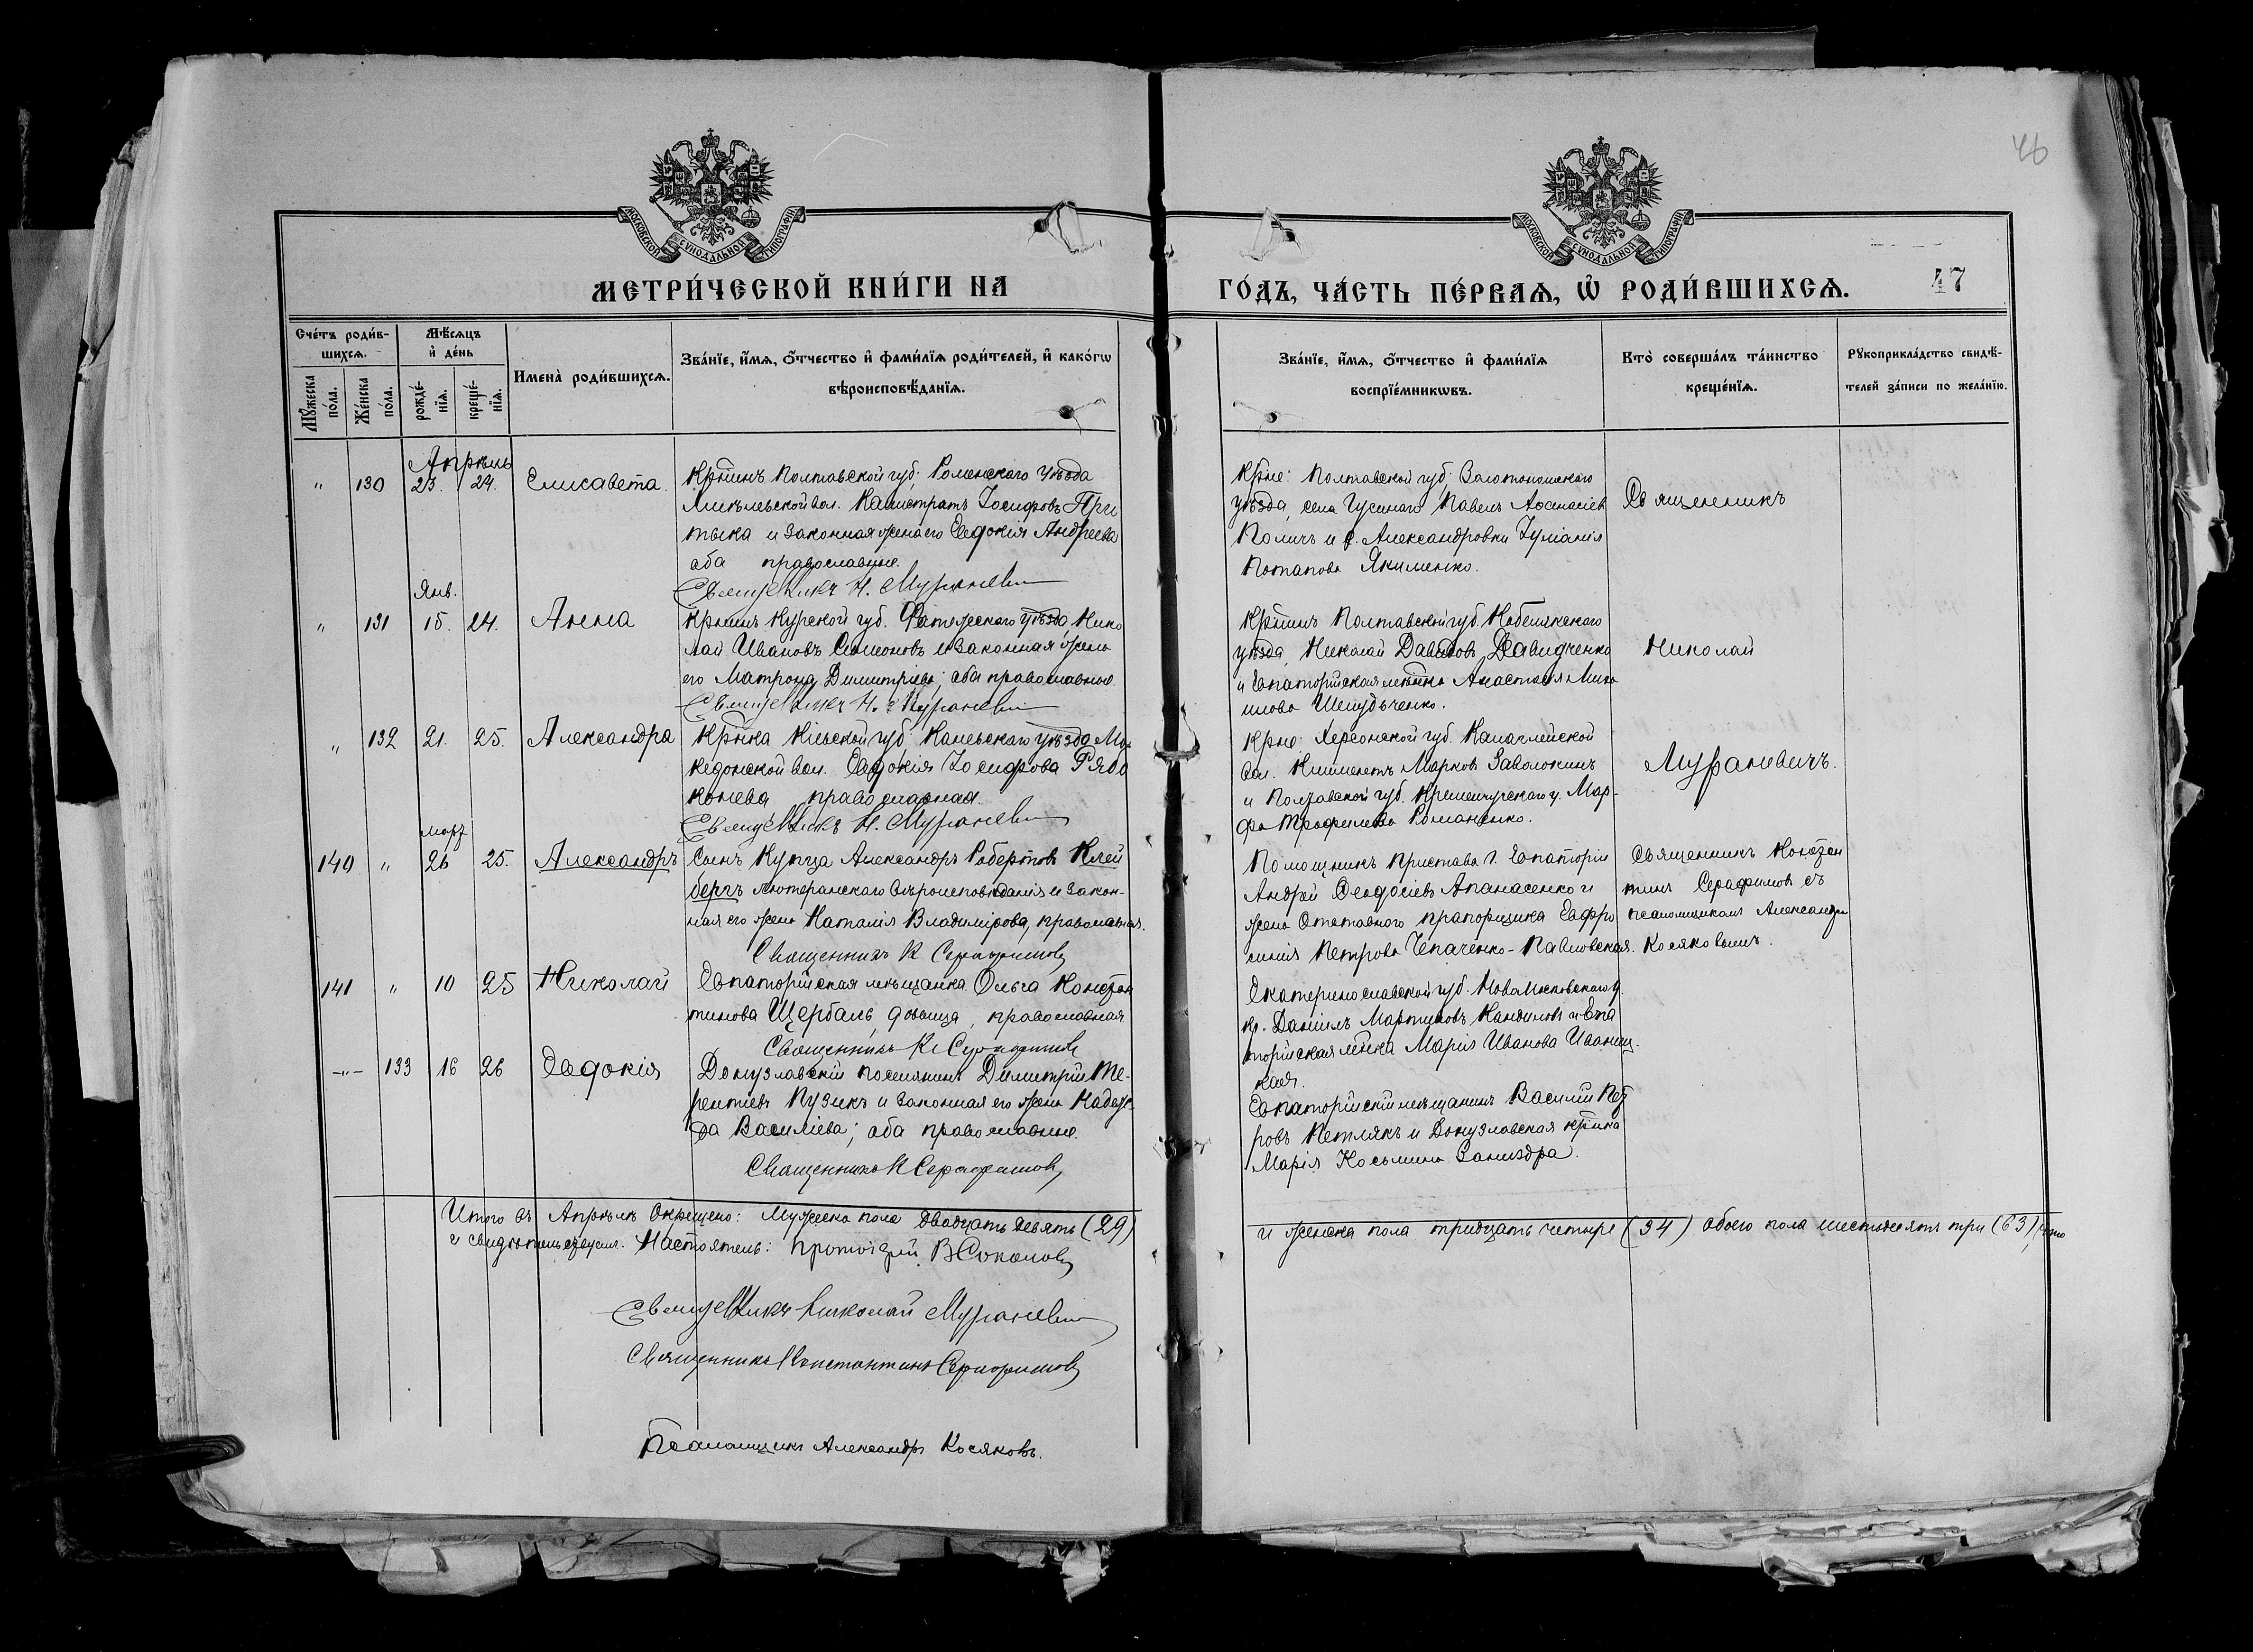 46
МОСКОВСКОЙ СУНОДАЛЬНОЙ ТИПОГРАФІИ
МОСКОВСКОЙ СУНОДАЛЬНОЙ ТИПОГРАФІИ
МЕТРИ́ЧЕСКОЙ КНИ́ГИ НА
ГО́ДЪ, ЧА́СТЬ ПЕ́РВАѦ, Ѡ҆ РОДИ́ВШИХСѦ. 47
Сче́тъ роди́в-
шихсѧ.
Мꙋ́жеска по́ла.
Же́нска по́ла.
Мѣ́сѧцъ
и҆ де́нь
рожде́-нїѧ.
креще́-нїѧ.
Имена̀ роди́вшихсѧ.
Зва́нїе, и҆́мѧ, ѻ҆́тчество и҆ фами́лїѧ роди́телей, и҆ како́гѡ
вѣроисповѣ́данїѧ.
Зва́нїе, и҆́мѧ, ѻ҆́тчество и҆ фами́лїѧ
воспрїе́мникѡвъ.
Кто̀ соверша́лъ та́инство
креще́нїѧ.
Рꙋкоприкла́дство свидѣ́-
телей за́писи по жела́нїю.
Апрѣль
" 130 23. 24. Елисавета.
Крнинъ Полтавской губ. Роменскаго уѣзда
вол. Калистратъ Іосифовъ При
тыка и законная жена его Евдокія Андреева
оба православные.
Священникъ Н. Мураневич
Крне: Полтавской губ. Золотоношскаго
уѣзда, села Гусинаго Павелъ
и с. Александровки Іуліанія
Потапова Якименко.
Священникъ
Янв.
" 131 15. 24. Анна
Крнинъ Курской губ. Фатежскаго уѣзда, Нико
лай Ивановъ Симеоновъ и законная жена
его Матрона Димитріева; оба православные.
Священникъ Н. Мураневич
Крнинъ Полтавской губ. Кобелякскаго
уѣзда, Николай Давидовъ Давидченко
и Евпаторійская мѣщнка Анастасія
Николай
" 132 21. 25. Александра
Крнка Кіевской губ. Каневскаго уѣзда Ма-
кедонской вол. Евдокія Іосифова Рябо
конева православная.
Священникъ Н. Мураневич
Крне: Херсонской губ.
вол. Климентъ Марковъ Заволокинъ
и Полтавской губ. Кременчугскаго у. Мар-
фа Трофимова Романенко.
Мураневичъ.
март
140 " 26 25. Александръ
Сынъ Купца Александръ Робертовъ Клей
бергъ лютеранскаго вѣроисповѣданія и закон-
ная его жена Наталія Владимірова, православная.
Священникъ К Серафимовъ
Помощникъ Пристава г. Евпаторіи
Андрей Феодосіевъ Апанасенко и
жена Отставного прапорщика Евфро
синія Петрова Чепаченко-Павловская.
Священникъ Констан
тинъ Серафимовъ съ
псаломщикомъ Александр
Косяковымъ.
141 " 10 25 Николай
Евпаторійская мѣщанка Ольга Констан
тинова Щербань, дѣвица, православная
Священникъ К Серафимовъ
Екатеринославской губ. Новомосковскаго у.
кр. Даніилъ Мартиновъ и Евпа
торійская мѣщнка Марія Иванова Иваниц-
кая.
-"- 133 16 26 Евдокія
Донузлавскій поселянинъ Димитрій Те-
рентіевъ Пузикъ и законная его жена Надеж-
да Василіева; оба православные.
Священникъ К Серафимовъ
Евпаторійскій мѣщанинъ Василій Пет
ровъ Петлякъ и Донузлавская крнка
Марія Косьмина
Итого въ Апрѣлѣ Окрещено: Мужеска пола двадцать девять (29)
и женска пола тридцать четыре (34) обоего пола шестьдесятъ три (63), что
и свидѣтельствуемъ. Настоятель: протоіерей В Соколовъ
Священникъ Николай Мураневич
Священникъ Константинъ Серафимовъ
Псаломщикъ Александръ Косяковъ.